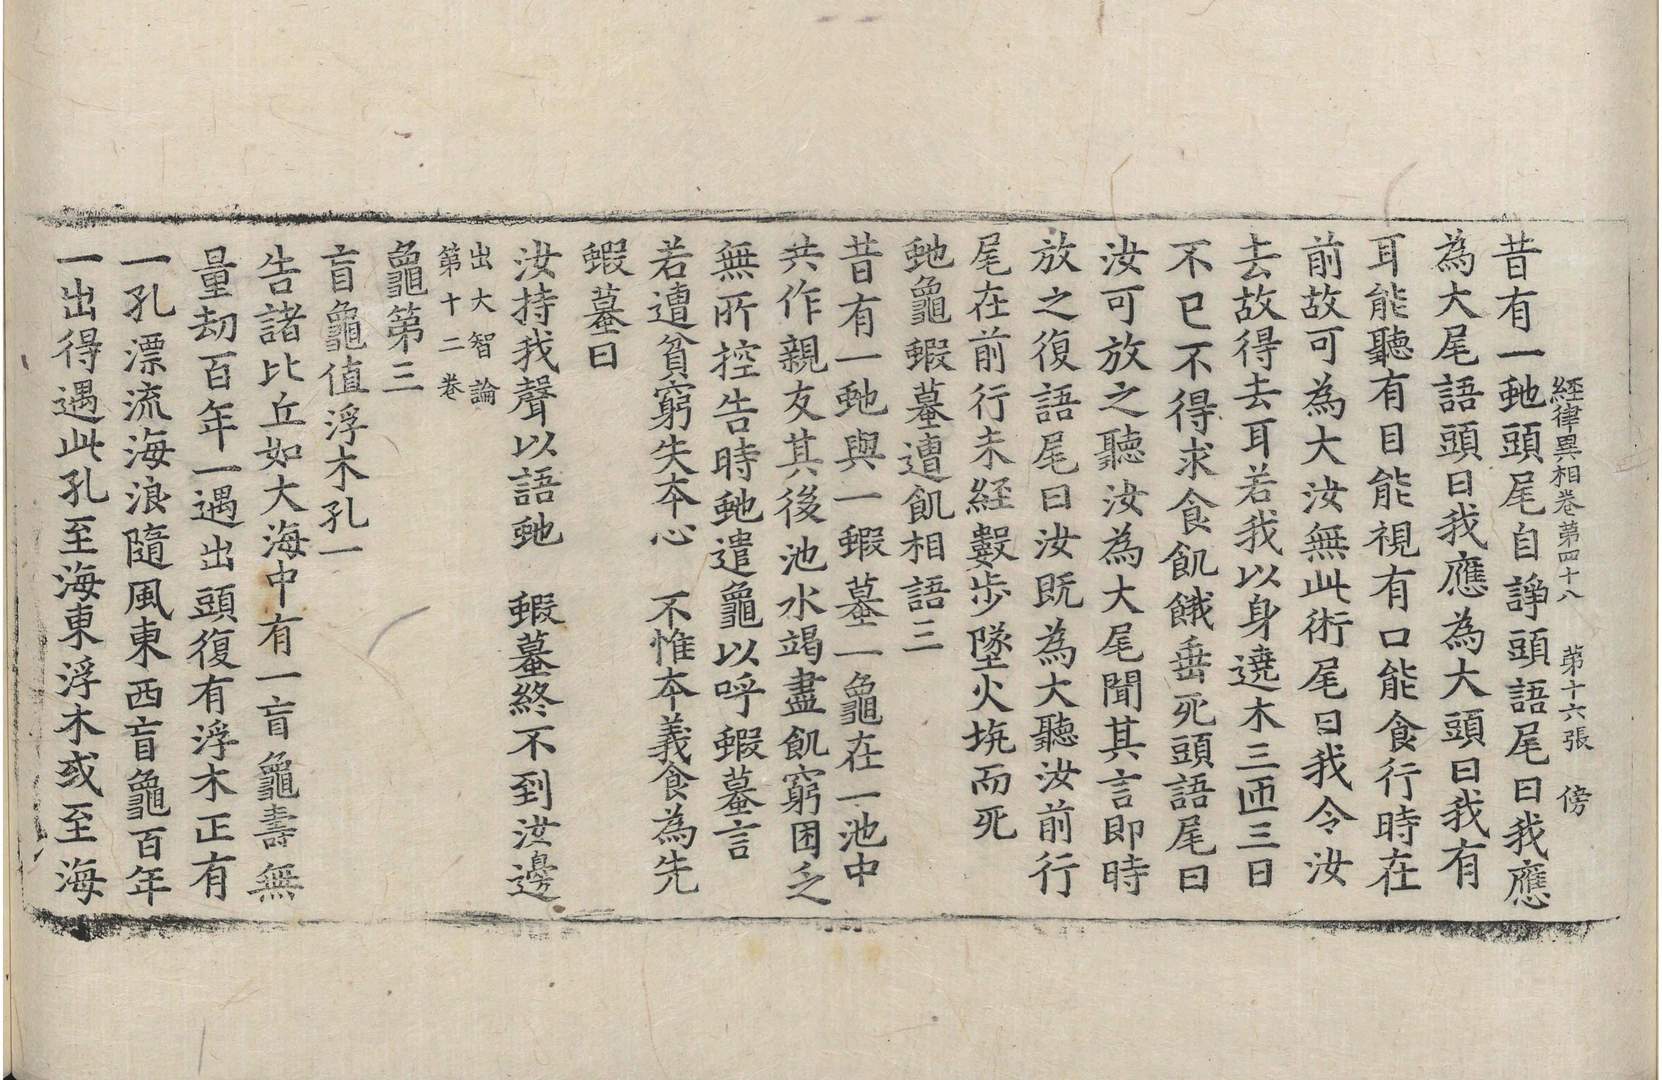 經律異相卷第四十八　第十六張　傍
昔有一虵頭尾自諍頭語尾曰我應
為大尾語頭曰我應為大頭曰我有
耳能聽有目能視有口能食行時在
前故可為大汝無此術尾曰我令汝
去故得去耳若我以身遶木三匝三日
不已不得求食飢餓垂死頭語尾曰
汝可放之聽汝為大尾聞其言即時
放之復語尾曰汝既為大聽汝前行
尾在前行未経數步墜火坑而死
虵龜蝦蟇遭飢相語三
昔有一虵與一蝦蟇一龜在一池中
共作親友其後池水竭盡飢窮困乏
無所控告時虵遣龜以呼蝦蟇言
若遭貧窮失夲心　不惟夲義食為先
蝦蟇曰
汝持我聲以語虵　蝦蟇終不到汝邊
出大智論
第十二卷
龜第三
盲龜值浮木孔一
告諸比丘如大海中有一盲龜壽無
量劫百年一遇出頭復有浮木正有
一孔漂流海浪隨風東西盲龜百年
一出得遇此孔至海東浮木或至海